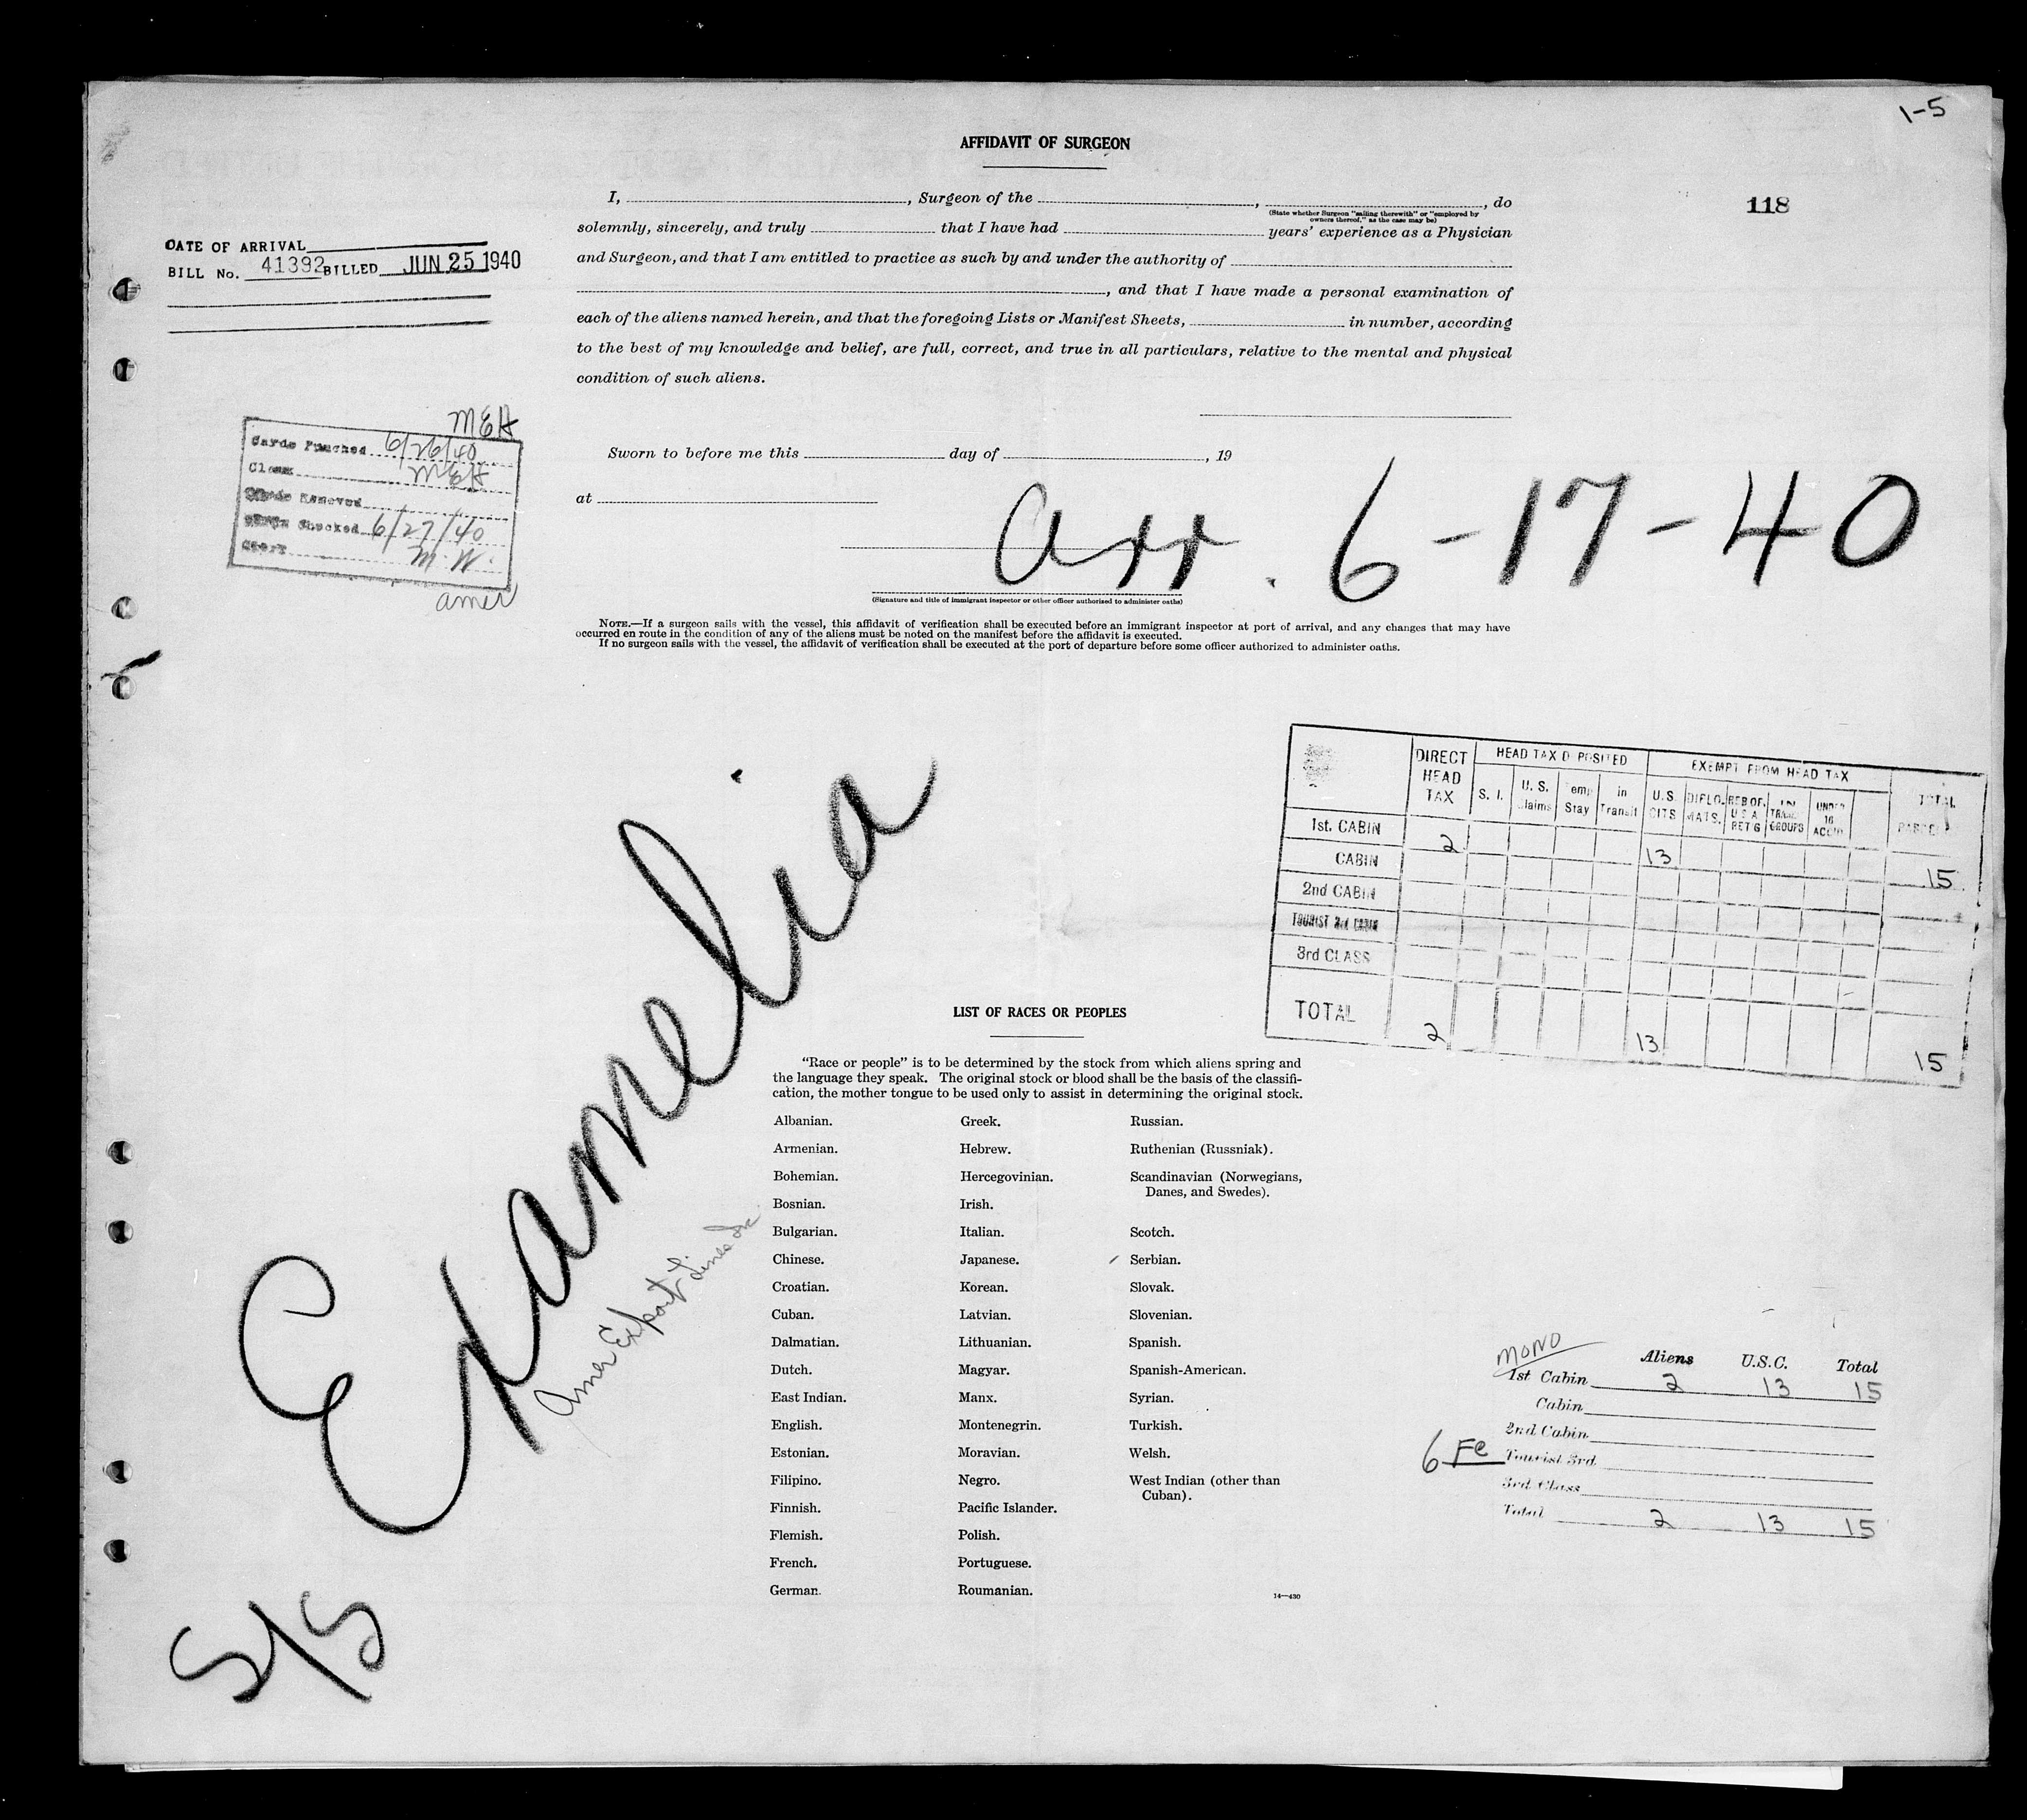 1-5
AFFIDAVIT OF SURGEON
118
I, , Surgeon of the , , do
(State whether Surgeon "sailing therewith" or "employed by
owners thereof," as the case may be)
solemnly, sincerely, and truly that I have had years' experience as a Physician
and Surgeon, and that I am entitled to practice as such by and under the authority of
, and that I have made a personal examination of
each of the aliens named herein, and that the foregoing Lists or Manifest Sheets, in number, according
to the best of my knowledge and belief, are full, correct, and true in all particulars, relative to the mental and physical
condition of such aliens.
DATE OF ARRIVAL
BILL No. 41392 BILLED JUN 25 1940
MEH
Cards Punched 6/26/40
Clerk MEH
Cards Removed
Checked 6/27/40
Clerk M.W.
amer
Sworn to before me this day of , 19
at
Arr. 6-17-40
(Signature and title of immigrant inspector or other officer authorized to administer oaths)
NOTE.—If a surgeon sails with the vessel, this affidavit of verification shall be executed before an immigrant inspector at port of arrival, and any changes that may have
occurred en route in the condition of any of the aliens must be noted on the manifest before the affidavit is executed.
If no surgeon sails with the vessel, the affidavit of verification shall be executed at the port of departure before some officer authorized to administer oaths.
DIRECT HEAD TAX
HEAD TAX D POSITED
EXEMPT FROM HEAD TAX
S. I.
U. S. Claims
Temp Stay
in Transit
U.S. CITS
DIPLO. MATS.
RES OF. U S A RET G
TRANS. GROUPS
UNDER 16 ACCM
TOTAL
1st. CABIN 2 13 15
CABIN
2nd CABIN
TOURIST 3rd CABIN
3rd CLASS
TOTAL 2 13 15
S/S Examelia
Amer Export Lines Inc
LIST OF RACES OR PEOPLES
"Race or people" is to be determined by the stock from which aliens spring and
the language they speak. The original stock or blood shall be the basis of the classifi-
cation, the mother tongue to be used only to assist in determining the original stock.
Albanian.
Armenian.
Bohemian.
Bosnian.
Bulgarian.
Chinese.
Croatian.
Cuban.
Dalmatian.
Dutch.
East Indian.
English.
Estonian.
Filipino.
Finnish.
Flemish.
French.
German.
Greek.
Hebrew.
Hercegovinian.
Irish.
Italian.
Japanese.
Korean.
Latvian.
Lithuanian.
Magyar.
Manx.
Montenegrin.
Moravian.
Negro.
Pacific Islander.
Polish.
Portuguese.
Roumanian.
Russian.
Ruthenian (Russniak).
Scandinavian (Norwegians,
Danes, and Swedes).
Scotch.
Serbian.
Slovak.
Slovenian.
Spanish.
Spanish-American.
Syrian.
Turkish.
Welsh.
West Indian (other than
Cuban).
14—430
MONO
Aliens U.S.C. Total
1st Cabin 2 13 15
Cabin
2nd Cabin
6 Fe
Tourist 3rd
3rd Class
Total 2 13 15